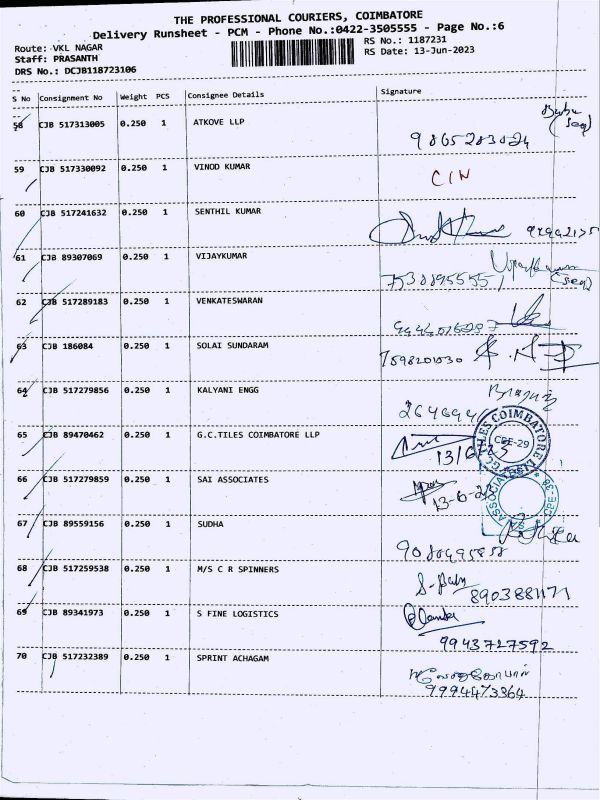 THE PROFESSIONAL COURIERS, COIMBATORE
Delivery Runsheet - PCM - Phone No.:0422-3505555 - Page No.:6
Route: VKL NAGAR
RS No.: 1187231
Staff: PRASANTH
RS Date: 13-Jun-2023
DRS No.: DCJB118723106
S No Consignment No Weight PCS Consignee Details Signature
58 CJB 517313005 0.250 1 ATKOVE LLP
(Seq)
9865283024
59 CJB 517330092 0.250 1 VINOD KUMAR
CIN
60 CJB 517241632 0.250 1 SENTHIL KUMAR
61 CJB 89307069 0.250 1 VIJAYKUMAR
7538895555
(Seq)
62 CJB 517289183 0.250 1 VENKATESWARAN
63 CJB 186084 0.250 1 SOLAI SUNDARAM
7598201030
64 CJB 517279856 0.250 1 KALYANI ENGG
65 CJB 89470462 0.250 1 G.C.TILES COIMBATORE LLP
13/6/23
CBE-29
66 CJB 517279859 0.250 1 SAI ASSOCIATES
13-6-23
67 CJB 89559156 0.250 1 SUDHA
68 CJB 517259538 0.250 1 M/S C R SPINNERS
8903881171
69 CJB 89341973 0.250 1 S FINE LOGISTICS
9943727592
70 CJB 517232389 0.250 1 SPRINT ACHAGAM
9994473364